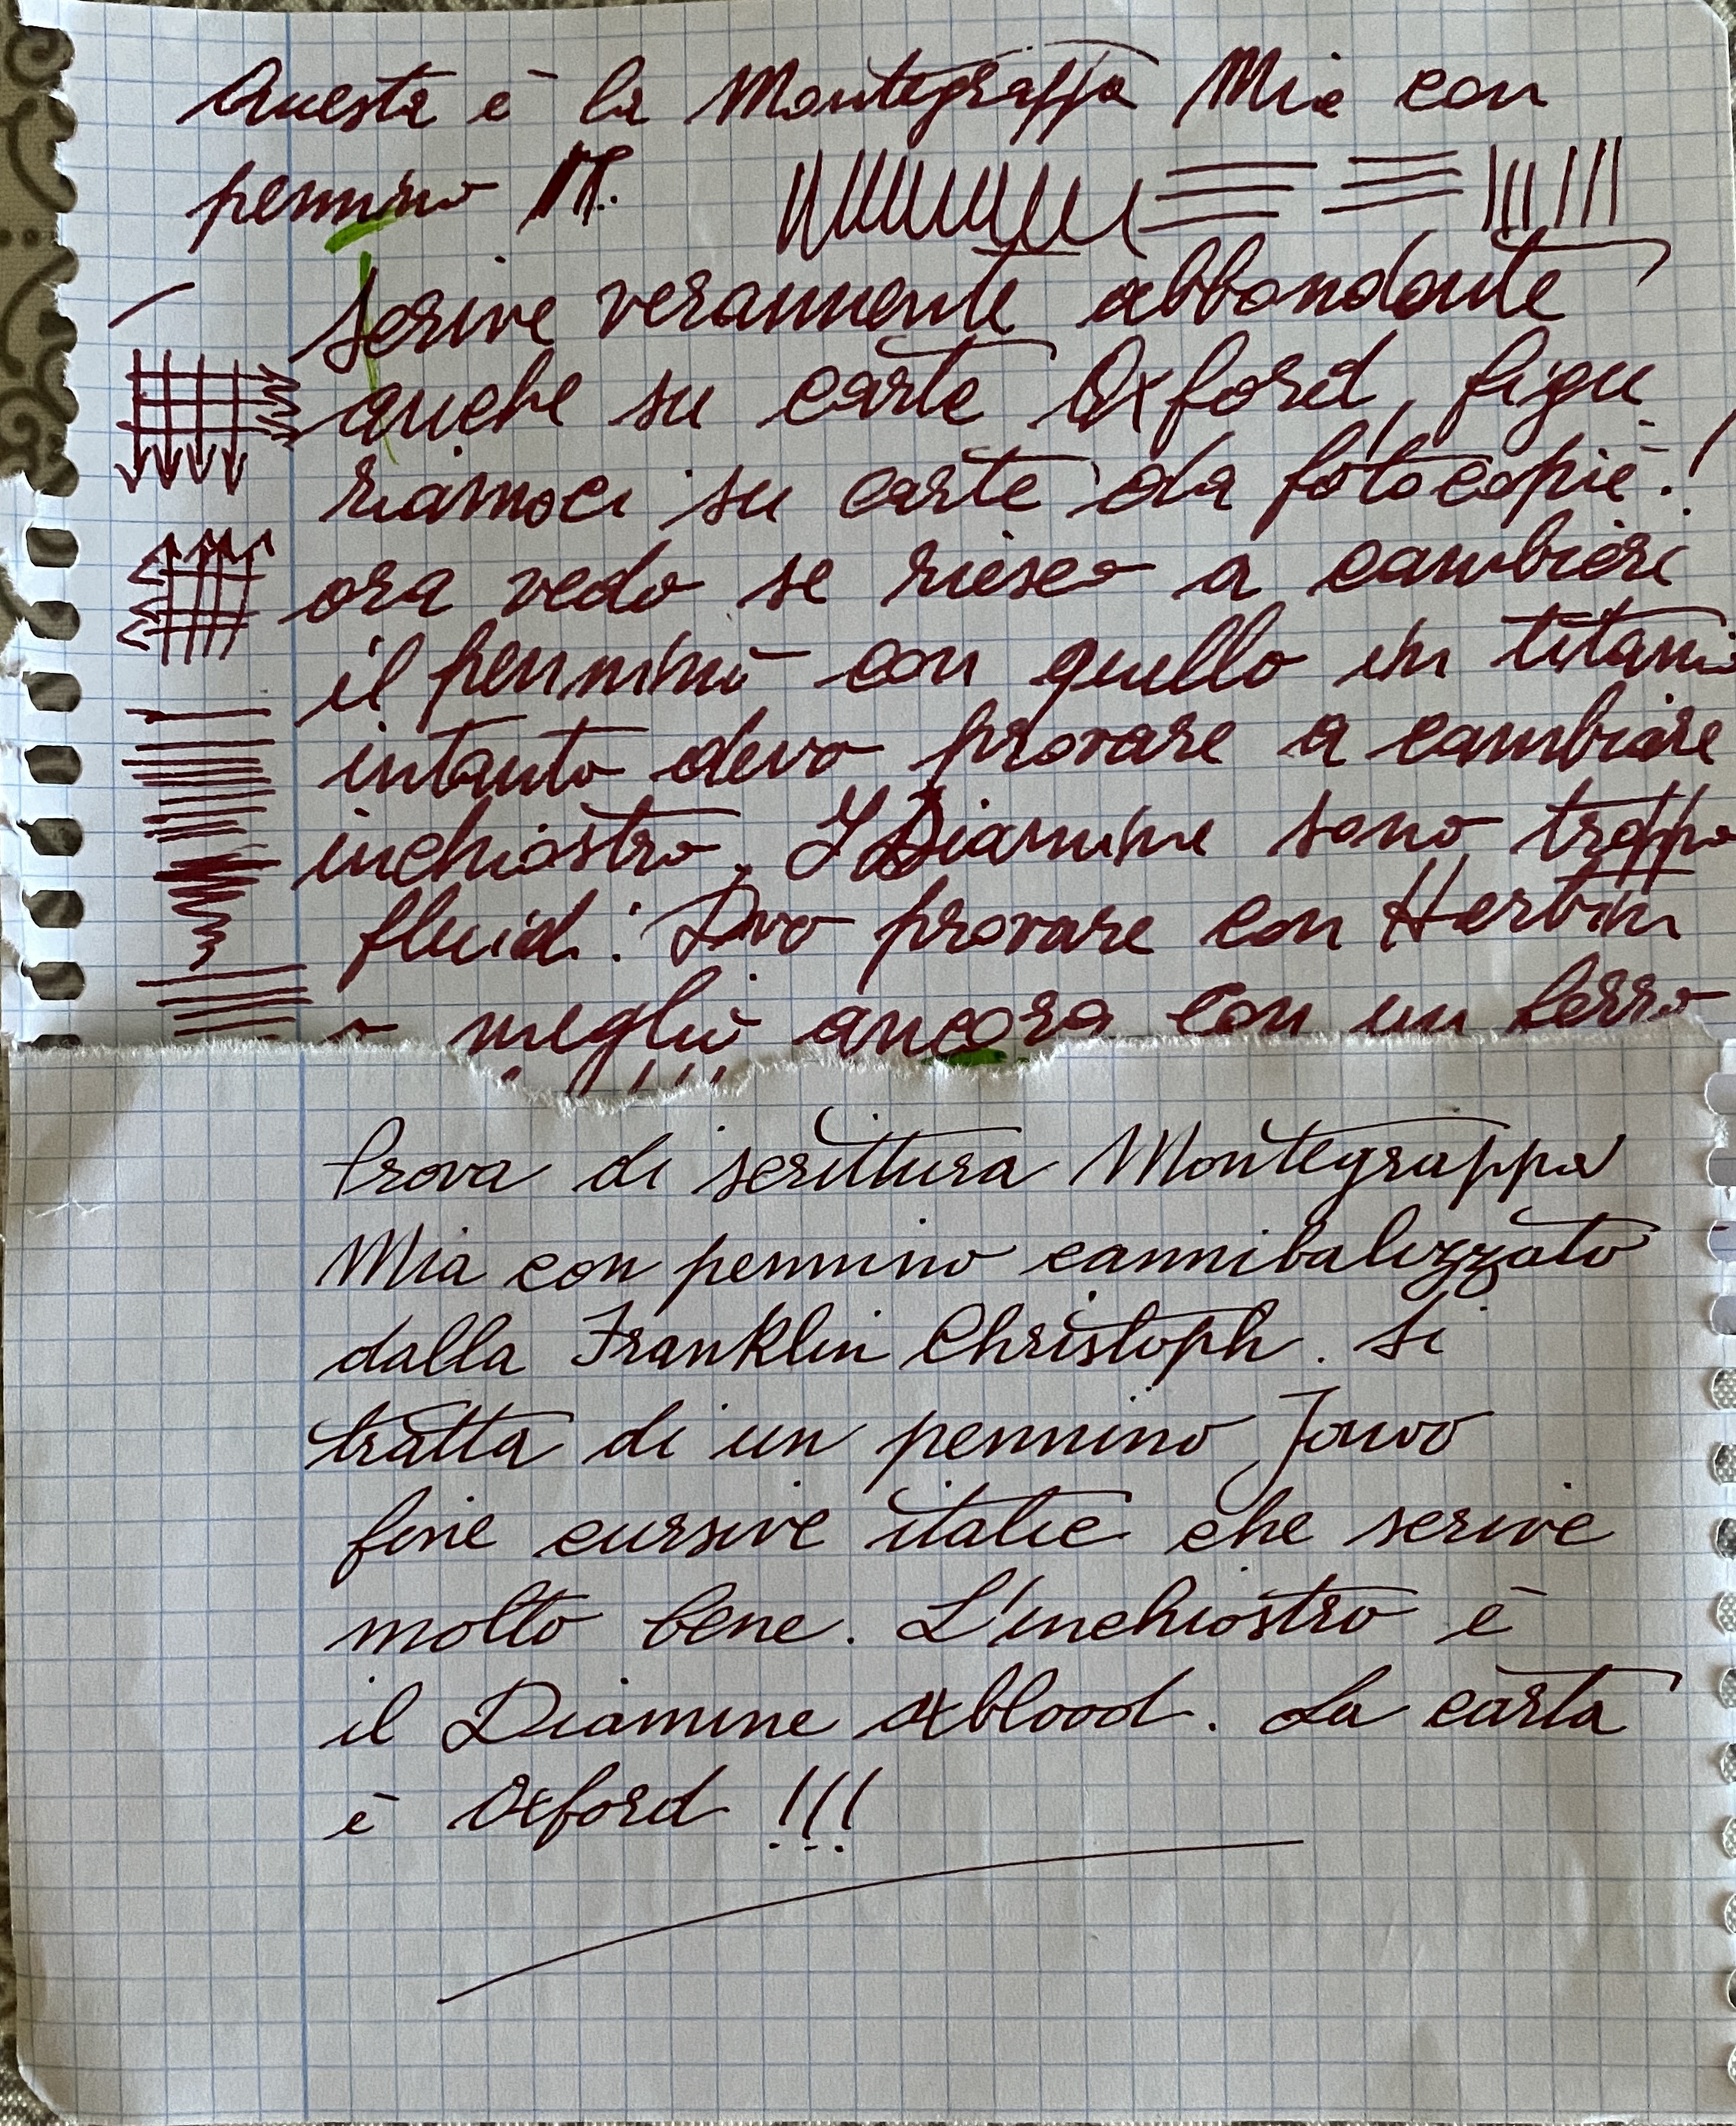 Questa è la Montegrappa Mia con
pennino M.
scrive veramente abbondante
anche su carta Oxford, figu
riamoci su carta da fotocopie!
ora vedo se riesco a cambiare
il pennino con quello in titani
intanto devo provare a cambiare
inchiostro. I Diamine sono troppo
fluidi. Devo provare con Herbin
o meglio ancora con un ferro
Prova di scrittura Montegrappa
Mia con pennino cannibalizzato
dalla Franklin Christoph. Si
tratta di un pennino Jowo
fine cursive italic che scrive
molto bene. L'inchiostro è
il Diamine oxblood. La carta
è Oxford !!!